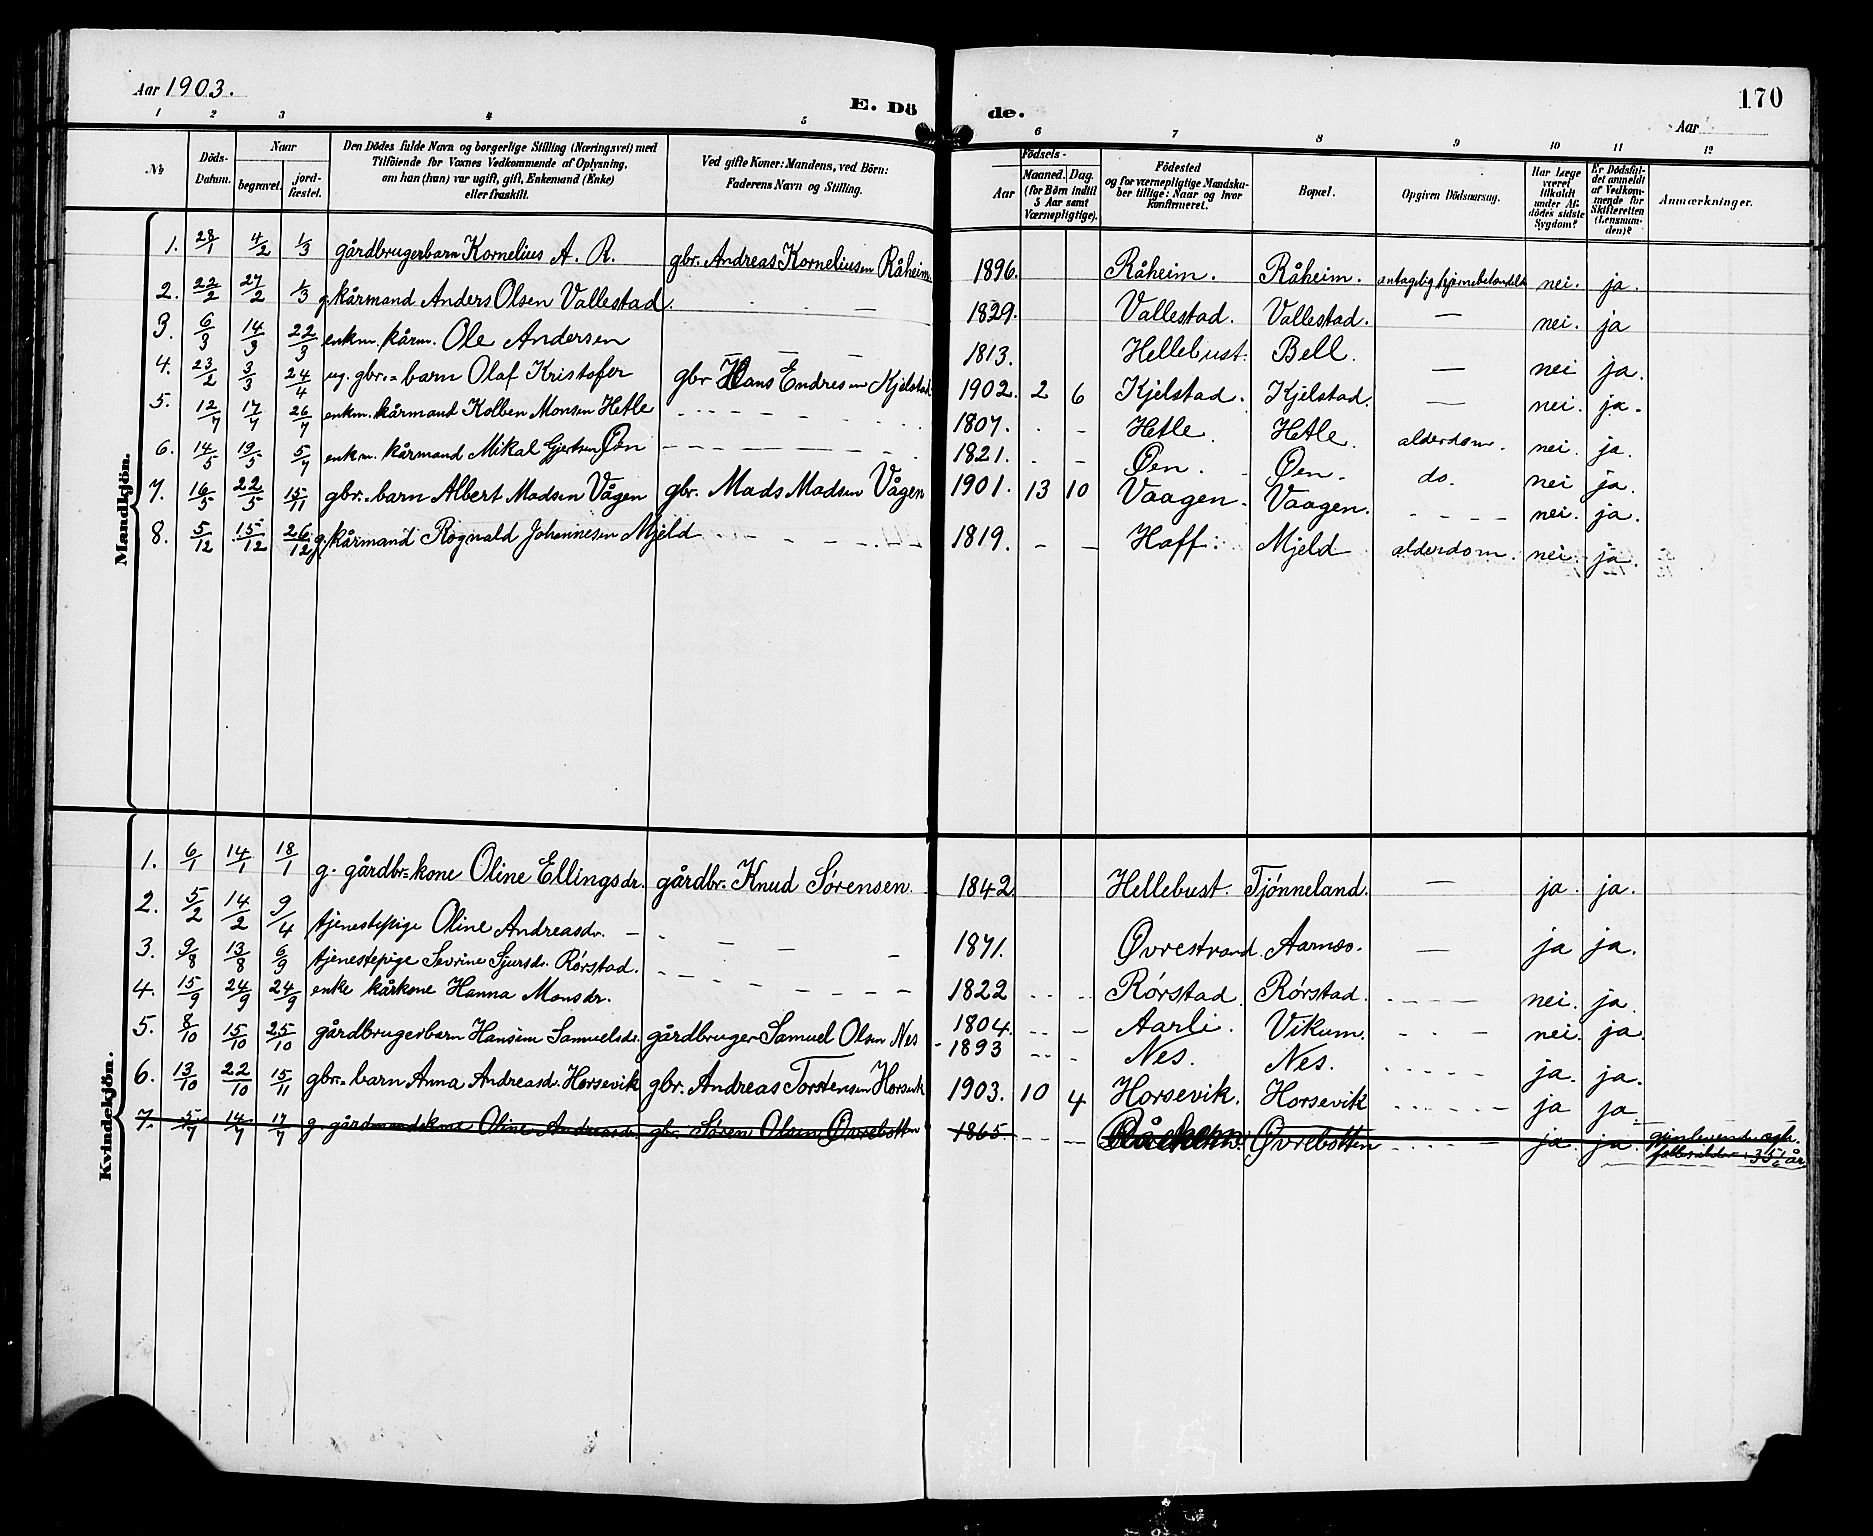 Aar 1903.
E. Dö de.
170
Aar
1 2 3 4 5 6 7 8 9 10 11 12
No. Döds-Datum. Naar begravet. jord-fæstet. Den Dödes fulde Navn og borgerlige Stilling (Næringsvei) med Tilföiende for Voxnes Vedkommende af Oplysning, om han (hun) var ugift, gift, Enkemand (Enke) eller fraskilt. Ved gifte Koner: Mandens, ved Börn: Faderens Navn og Stilling. Födsels- Aar Maaned. Dag. (for Börn indtil 5 Aar samt Værnepligtige). Födested og for værnepligtige Mandskaber tillige: Naar og hvor konfirmeret. Bopæl. Opgiven Dödsaarsag. Har Læge været tilkaldt under Afdödes sidste Sygdom? Er Dödsfaldet anmeldt af Vedkommende for Skifteretten (Lensmanden)? Anmærkninger.
Mandkjön.
1. 28/1 4/2 1/3 gårdbrugerbarn Kornelius A. R. gbr. Andreas Korneliusen Råheim 1896. Råheim. Råheim. antagelig hjernebetændelse nei. ja.
2. 22/2 27/2 1/3 g. kårmand Anders Olsen Vallestad. — 1829. Vallestad. Vallestad. — nei. ja
3. 6/3 14/3 22/3 enkm. kårm. Ole Andersen — — — 1813. Hellebust. Bell. — nei ja.
4. 23/2 3/3 24/4 ug. gbr.-barn Olaf Kristofer gbr Hans Endresen Kjelstad 1902. 2 6 Kjelstad. Kjelstad. — nei. ja.
5. 12/7 17/7 26/7 enkm. kårmand Kolben Monsen Hetle 1807. Hetle. Hetle. alderdom. nei. ja.
6. 14/5 19/5 5/7 enkm. kårmand Mikal Gjertsen Øen 1821. Øen. Øen. do. nei ja.
7. 16/5 22/5 15/11 gbr.-barn Albert Madsen Vågen gbr. Mads Madsen Vågen 1901. 13 10 Vaagen. Vaagen. - - - - nei. ja.
8. 5/12 15/12 26/12 g. kårmand Rognald Johannesen Mjeld 1819. - - Haff. Mjeld alderdom. nei. ja.
Kvindekjön.
1. 6/1 14/1 18/1 g. gårdbr-kone Oline Ellingsdr. gårdbr. Knud Sørensen. 1842. Hellebust. Tjønneland. — ja. ja.
2. 5/2 14/2 9/4 tjenestepige Oline Andreasdr. — 1871. Øvrestrand. — ja ja.
3. 9/8 13/8 6/9 tjenestepige Sevrine Sjursdr. Rørstad. 1822 Rørstad. Rørstad. nei. ja.
4. 15/9 24/9 24/9 enke kårkone Hanna Monsdr. 1804. Aarli. Vikum. nei. ja.
5. 8/10 15/10 25/10 gårdbrugerbarn Hansine Samuelsdr. gårdbruger Samuel Olsen Nes 1893 Nes. Nes. ja. ja.
6. 13/10 22/10 15/11 gbr.-barn Anna Andreasd. Horsevik gbr. Andreas Torstensen Horsevik 1903. 10 4 Horsevik. Horsevik ja ja
7. 5/7 14/7 17/7 g gårdmandskone Oline Andreasdr. gbr. Søren Olsen Øvrebotten 1865 Øvrebotten ja ja.